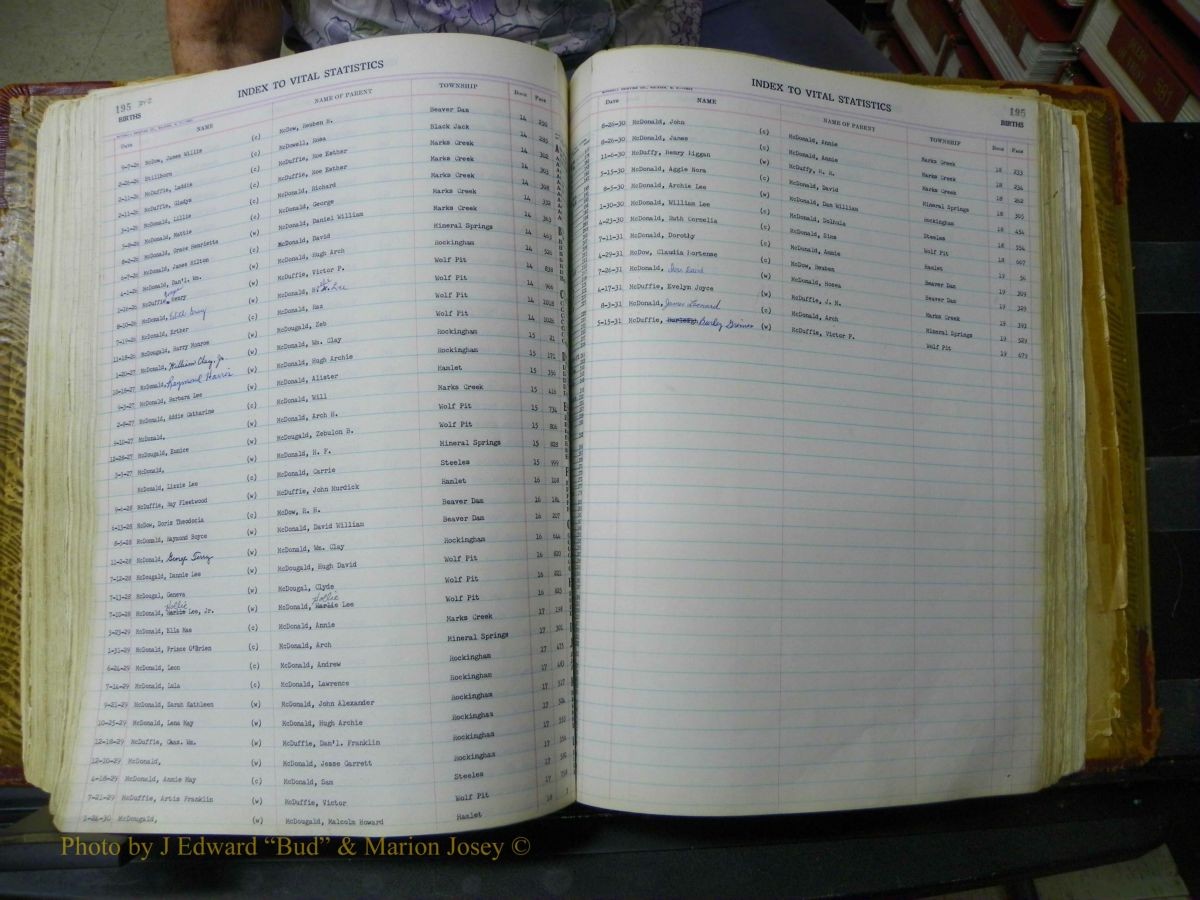 195 BVZ
BIRTHS
INDEX TO VITAL STATISTICS
Date NAME NAME OF PARENT TOWNSHIP Book Page
9-7-26 McDow, James Willie (c) McDow, Reuben H. Beaver Dam 14 250
2-26-26 Stillborn (c) McDowell, Rosa Black Jack 14 285
2-11-26 McDuffie, Luddie (c) McDuffie, Roe Esther Marks Creek 14 302
2-11-26 McDuffie, Gladys (c) McDuffie, Roe Esther Marks Creek 14 303
3-1-26 McDonald, Lillie (c) McDonald, Richard Marks Creek 14 308
McDonald, Mattie (c) McDonald, George Marks Creek 14 332
8-2-26 McDonald, Grace Henrietta (w) McDonald, Daniel William Marks Creek 14 343
6-7-26 McDonald, James Hilton (c) McDonald, David Mineral Springs 14 463
McDonald, Dan'l. Wm. (w) McDonald, Hugh Arch Rockingham 14 526
McDuffie, Henry (w) McDuffie, Victor P. Wolf Pit 14 838
8-10-26 McDonald, Edith Gray (w) McDonald, Lee Wolf Pit 14 966
7-19-26 McDonald, Esther (c) McDonald, Haz Wolf Pit 14 1018
11-18-26 McDougald, Harry Monroe (w) McDougald, Zeb Wolf Pit 14 1026
1-20-27 McDonald, William Clay, Jr. (w) McDonald, Wm. Clay Rockingham 15 21
10-16-27 McDonald, Raymond Harris (w) McDonald, Hugh Archie Rockingham 15 171
9-3-27 McDonald, Barbara Lee (w) McDonald, Alister Hamlet 15 356
2-8-27 McDonald, Addie Catharine (c) McDonald, Will Marks Creek 15 416
9-10-27 McDonald, (w) McDonald, Arch H. Wolf Pit 15 734
12-26-27 McDougald, Eunice (w) McDougald, Zebulon B. Wolf Pit 15 806
3-5-27 McDonald, (w) McDonald, H. F. Mineral Springs 15 828
McDonald, Lizzie Lee (c) McDonald, Carrie Steeles 15 999
9-6-28 McDuffie, Ray Fleetwood (w) McDuffie, John Murdick Hamlet 16 108
6-13-28 McDow, Doris Theodocia (c) McDow, R. H. Beaver Dam 16 181
8-5-28 McDonald, Raymond Boyce (w) McDonald, David William Beaver Dam 16 207
11-2-28 McDonald, George Terry (w) McDonald, Wm. Clay Rockingham 16 644
7-12-28 McDougald, Dannie Lee (w) McDougald, Hugh David Wolf Pit 16 820
7-13-28 McDougal, Geneva (w) McDougal, Clyde Wolf Pit 16 821
7-10-28 McDonald, Hollie Lee, Jr. (w) McDonald, Hollie Lee Wolf Pit 16 825
3-23-29 McDonald, Ella Mae (c) McDonald, Annie Marks Creek 17 198
1-31-29 McDonald, Prince O'Brien (c) McDonald, Arch Mineral Springs 17 301
6-24-29 McDonald, Leon (c) McDonald, Andrew Rockingham 17 413
7-14-29 McDonald, Lula (c) McDonald, Lawrence Rockingham 17
9-21-29 McDonald, Sarah Kathleen (w) McDonald, John Alexander Rockingham 17
10-25-29 McDonald, Lena May (w) McDonald, Hugh Archie Rockingham 17
12-18-29 McDuffie, Chas. Wm. (w) McDuffie, Dan'l. Franklin Rockingham 17
12-10-29 McDonald, (w) McDonald, Jesse Garrett Rockingham 17
4-18-29 McDonald, Annie May (c) McDonald, Sam Steeles 17
7-21-29 McDuffie, Artis Franklin (w) McDuffie, Victor Wolf Pit 17
1-24-30 McDougald, (w) McDougald, Malcolm Howard Hamlet 18
INDEX TO VITAL STATISTICS
195
BIRTHS
Date NAME NAME OF PARENT TOWNSHIP Book Page
8-26-30 McDonald, John (c) McDonald, Annie Marks Creek 18 233
8-26-30 McDonald, James (c) McDonald, Annie Marks Creek 18 234
11-6-30 McDuffy, Henry Higgan (w) McDuffy, H. H. Marks Creek 18 262
5-15-30 McDonald, Aggie Nora (c) McDonald, David Mineral Springs 18 305
8-5-30 McDonald, Archie Lee (w) McDonald, Dan William Rockingham 18 454
1-30-30 McDonald, William Lee (c) McDonald, Dolphula Steeles 18 554
4-23-30 McDonald, Ruth Cornelia (c) McDonald, Sims Wolf Pit 18 667
7-11-31 McDonald, Dorothy (c) McDonald, Annie Hamlet 19 56
4-29-31 McDow, Claudia Hortense (c) McDow, Reuben Beaver Dam 19 309
7-26-31 McDonald, (c) McDonald, Hosea Beaver Dam 19 329
4-17-31 McDuffie, Evelyn Joyce (w) McDuffie, J. M. Marks Creek 19 393
8-3-31 McDonald, James Leonard (c) McDonald, Arch Mineral Springs 19 529
5-15-31 McDuffie, Burley Grimes (w) McDuffie, Victor P. Wolf Pit 19 679
Photo by J Edward “Bud” & Marion Josey ©